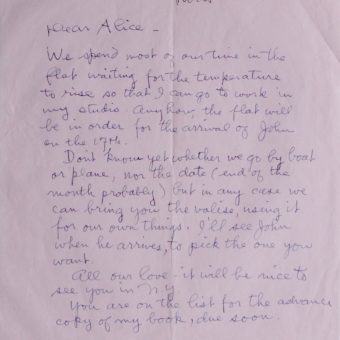 Dear Alice -
We spend most of our time in the
flat waiting for the temperature
to rise so that I can go to work in
my studio. Anyhow, the flat will
be in order for the arrival of John
on the 17th.
Don't know yet whether we go by boat
or plane, nor the date (end of the
month probably) but in any case we
can bring you the valise, using it
for our own things. I'll see John
when he arrives, to pick the one you
want.
All our love - it will be nice to
see you in N.Y.
You are on the list for the advance
copy of my book, due soon.